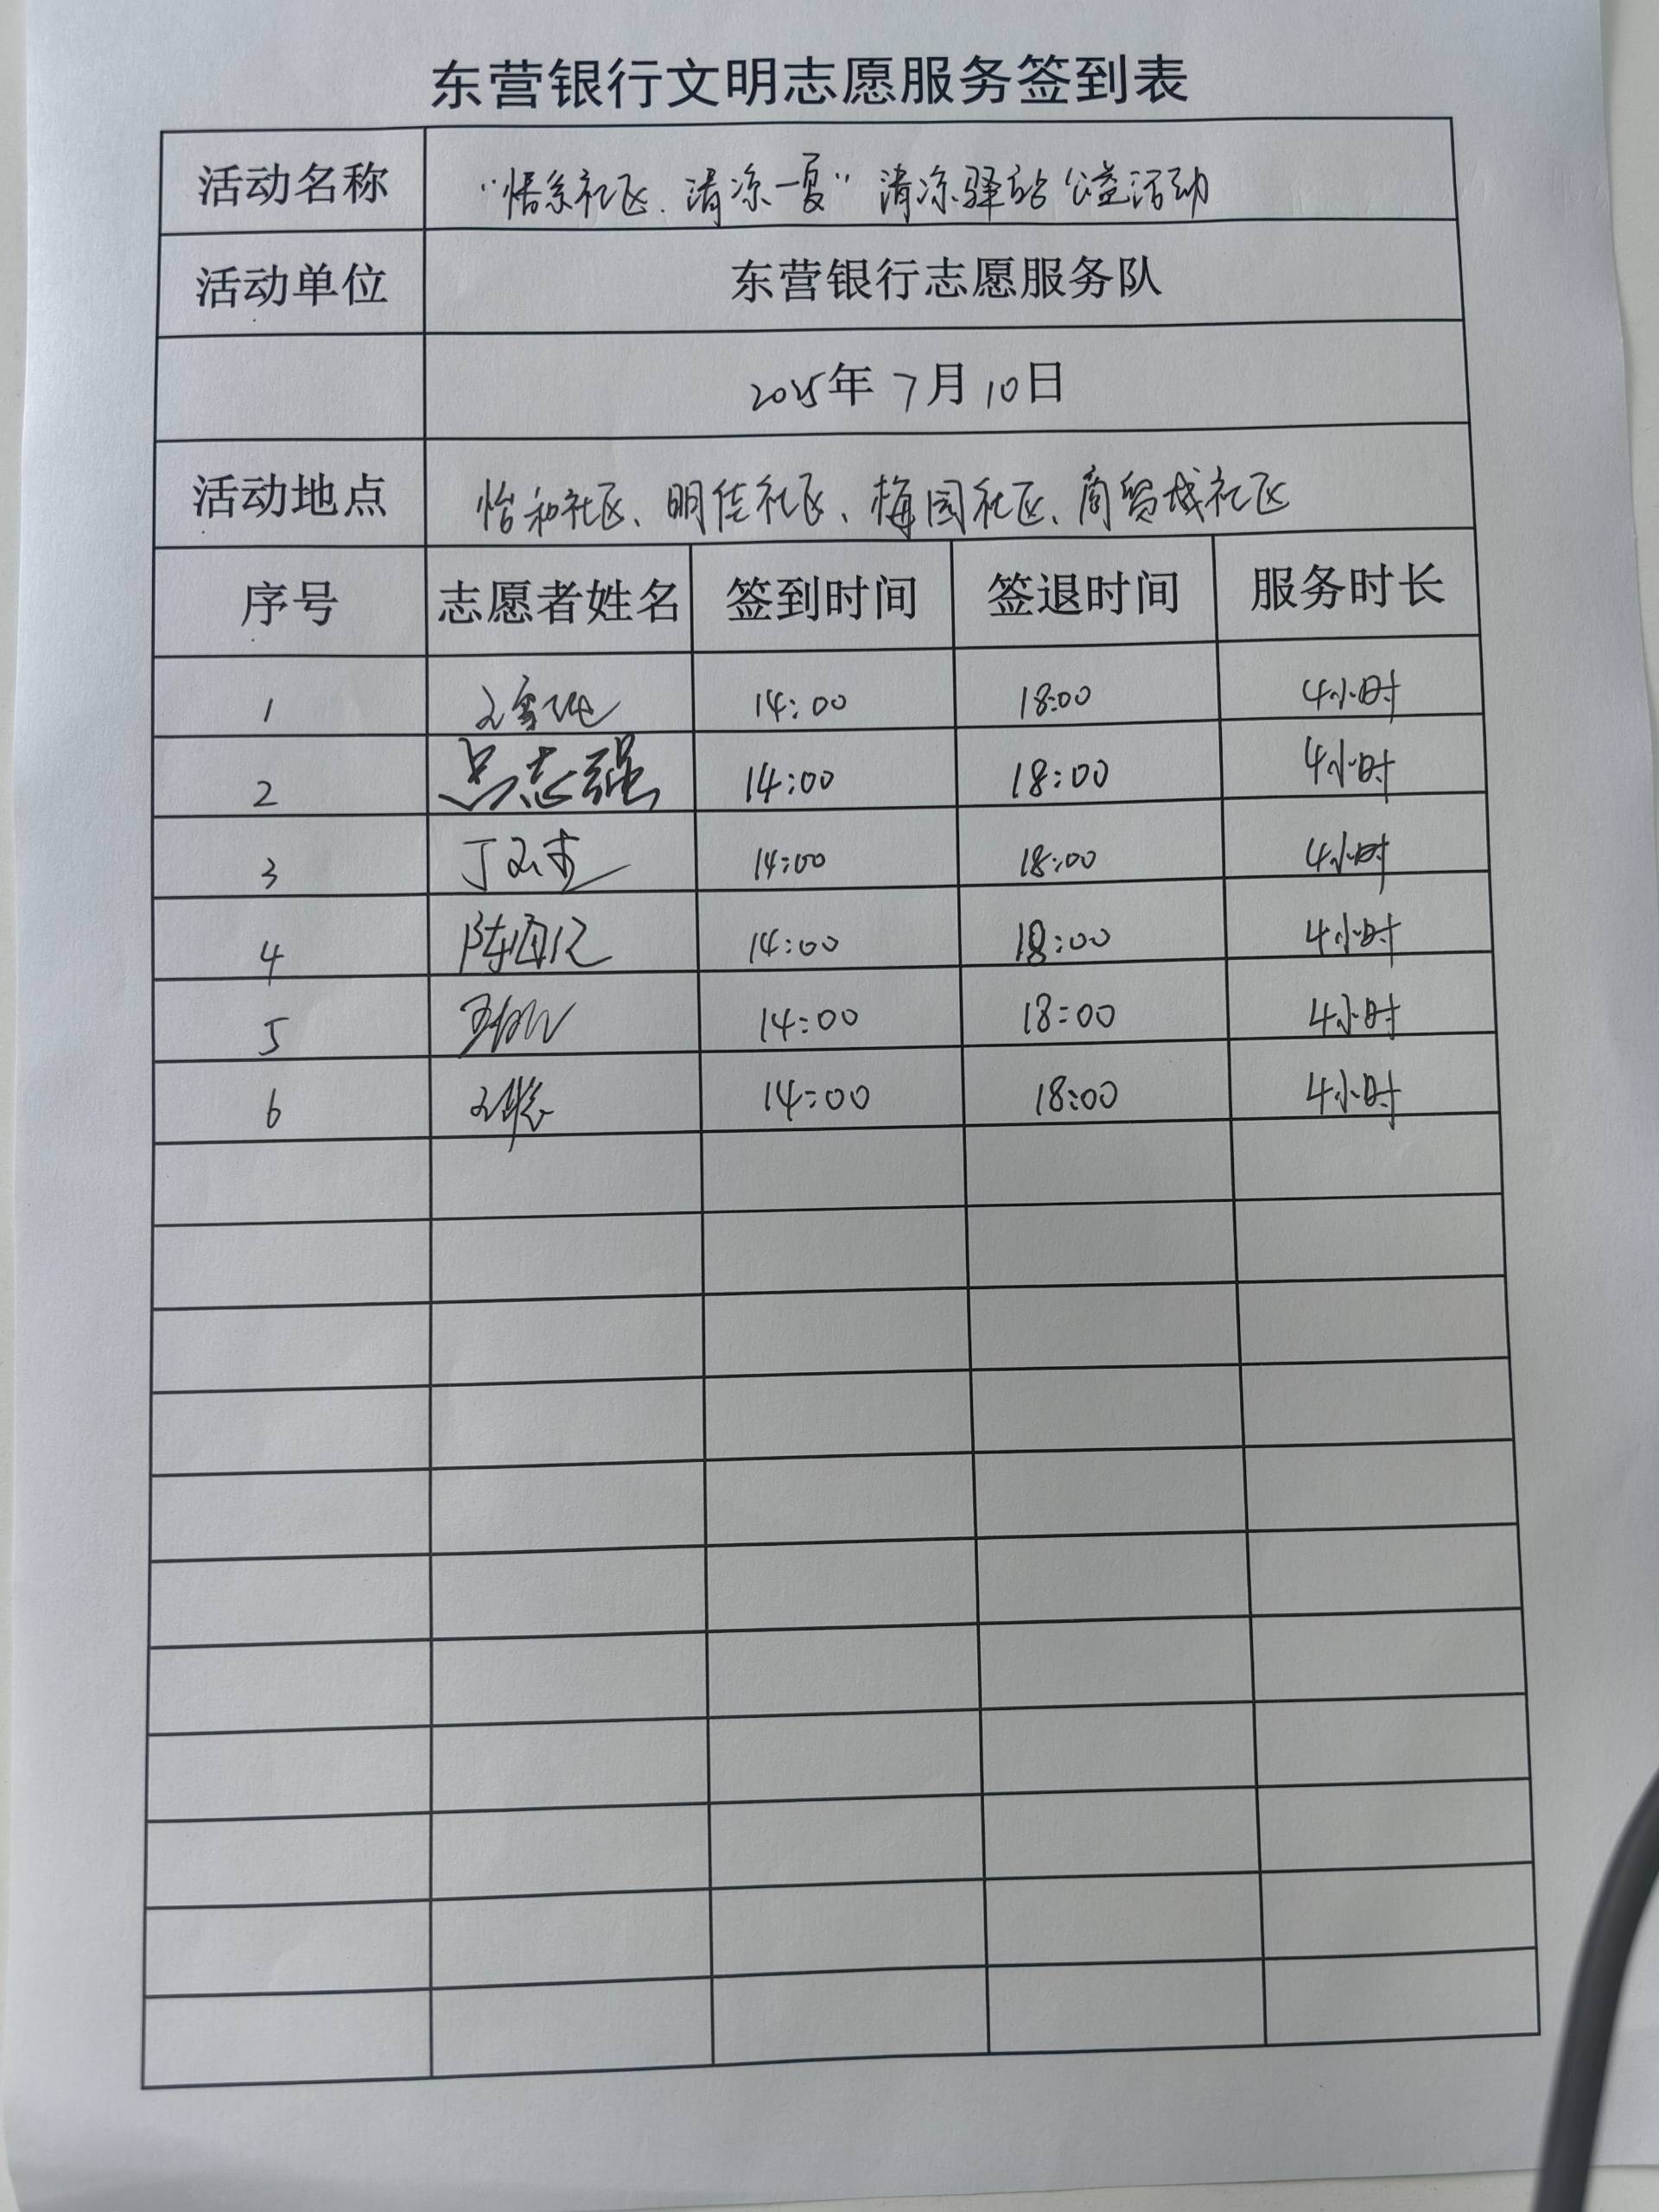 东营银行文明志愿服务签到表
活动名称 “情系社区、清凉一夏”清凉驿站公益活动
活动单位 东营银行志愿服务队
2025年7月10日
活动地点 怡和社区、明佳社区、梅园社区、商贸城社区
序号 志愿者姓名 签到时间 签退时间 服务时长
1 14:00 18:00 4小时
2 吴志强 14:00 18:00 4小时
3 14:00 18:00 4小时
4 14:00 18:00 4小时
5 14:00 18:00 4小时
6 14:00 18:00 4小时